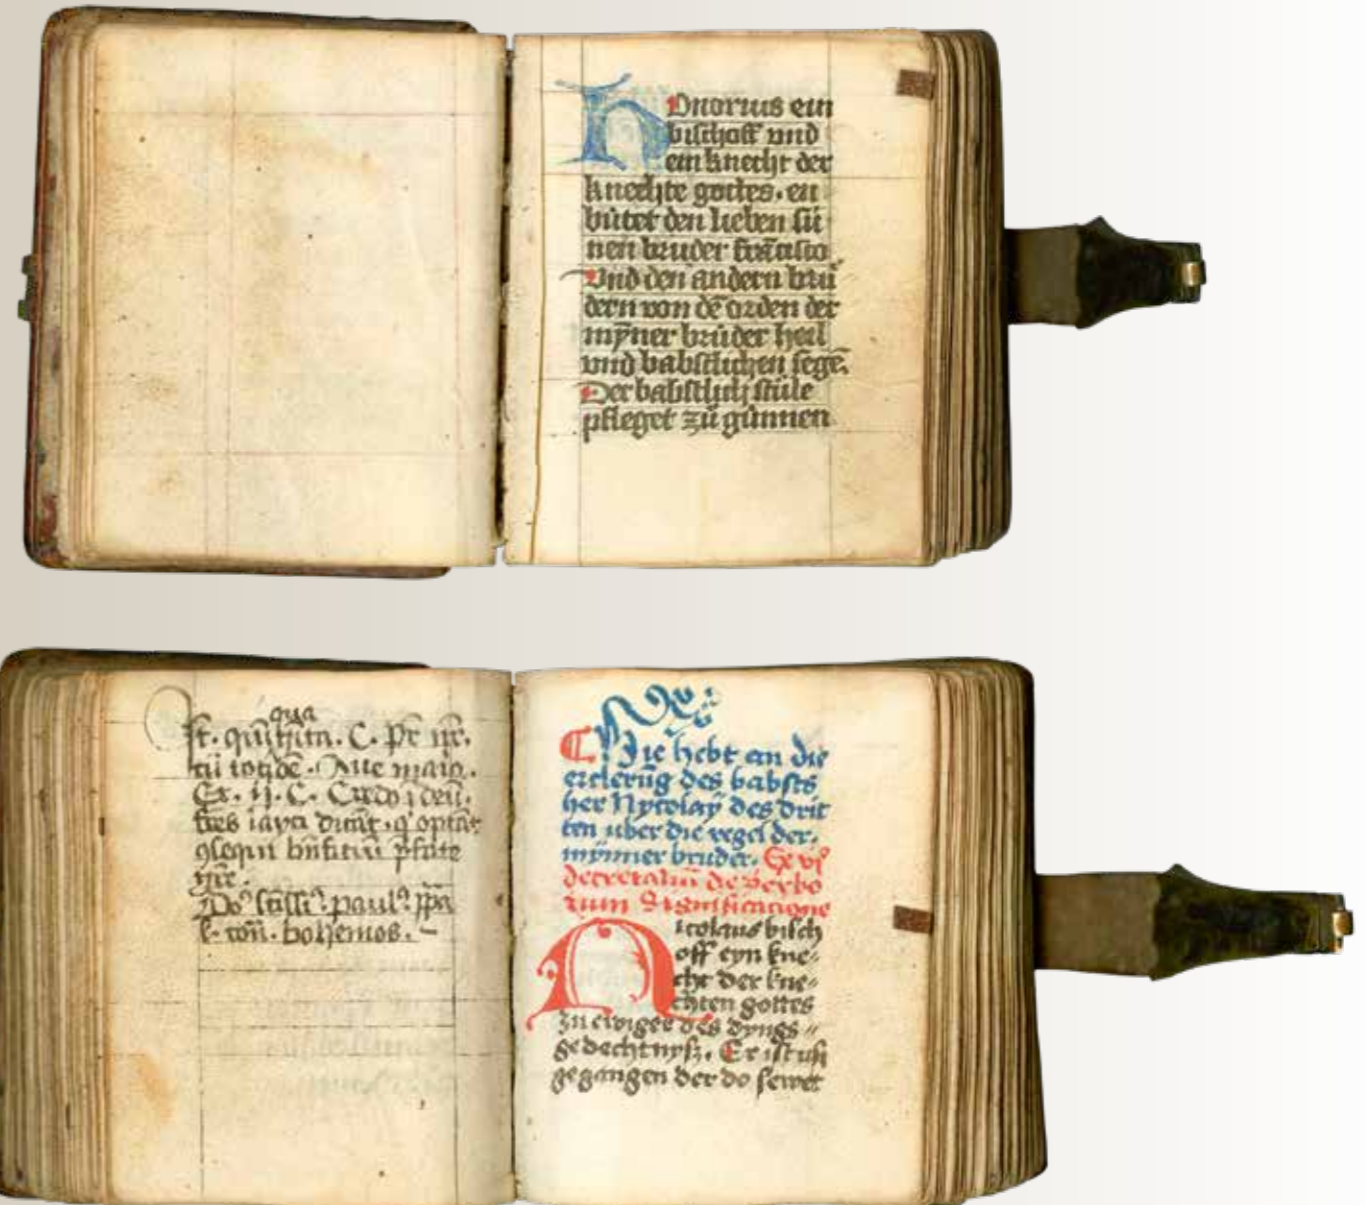 Honorius ein
bischoff vnd
ein knecht der
knechte gottes. en
bütet den lieben sü
nen bruder francisco
Vnd den andern brü
dern von dē orden der
mÿner brüder heil
vnd babstlichen segē.
Der babstlich stüle
pfleget zü günnen
qua
C. Pr̄ nr̄.
Aue maria.
Ex. ij. C. Credo ī deū.
fr̄es layci
bohemos.
Hie hebt an die
erclerūg des babsts
her Nycolaÿ des drit
ten uber die regel der.
mÿnner bruder. Ex vjͦ
decretaliū de Verbo
rum significacione
Nicolaus bisch
off eyn kne-
cht der kne-
chten gottes
zu ewiger des dyngs
gedechtnysz. Er ist usz
gegangen der do sewet